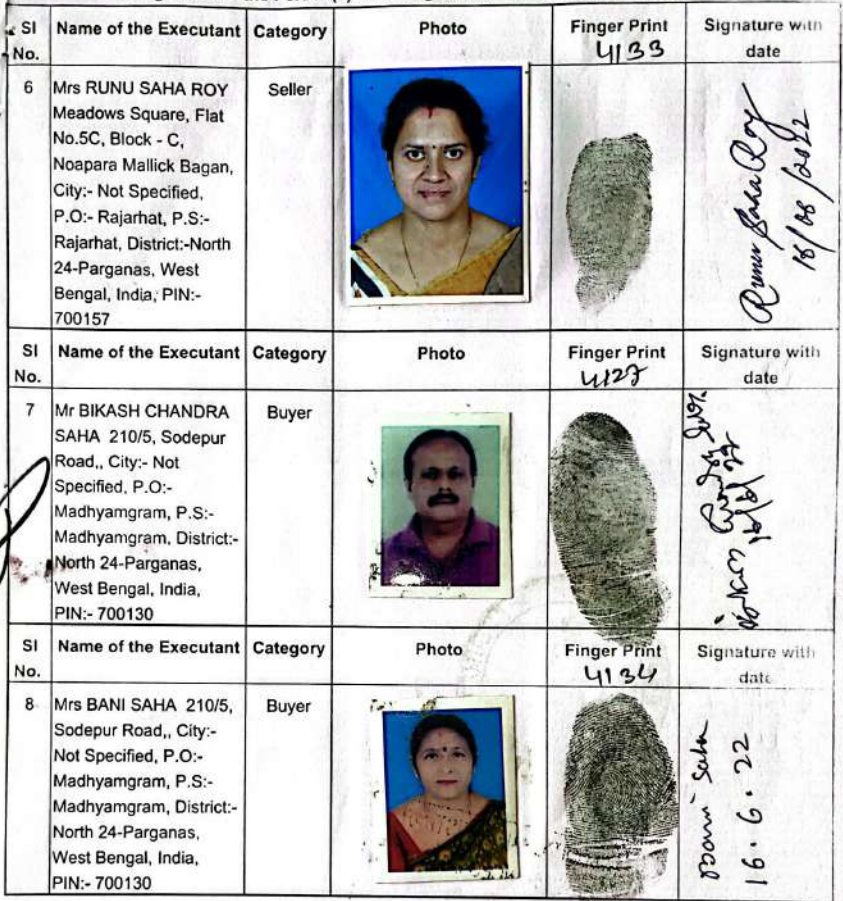 Sl No. Name of the Executant Category Photo Finger Print Signature with date
4133
6 Mrs RUNU SAHA ROY Seller
Meadows Square, Flat
No.5C, Block - C,
Noapara Mallick Bagan,
City:- Not Specified,
P.O:- Rajarhat, P.S:-
Rajarhat, District:-North
24-Parganas, West
Bengal, India, PIN:-
700157
Runu Saha Roy
16/06/2022
Sl No. Name of the Executant Category Photo Finger Print Signature with date
4127
7 Mr BIKASH CHANDRA Buyer
SAHA 210/5, Sodepur
Road,, City:- Not
Specified, P.O:-
Madhyamgram, P.S:-
Madhyamgram, District:-
North 24-Parganas,
West Bengal, India,
PIN:- 700130
16/6/22
Sl No. Name of the Executant Category Photo Finger Print Signature with date
4134
8 Mrs BANI SAHA 210/5, Buyer
Sodepur Road,, City:-
Not Specified, P.O:-
Madhyamgram, P.S:-
Madhyamgram, District:-
North 24-Parganas,
West Bengal, India,
PIN:- 700130
Bani Saha
16.6.22